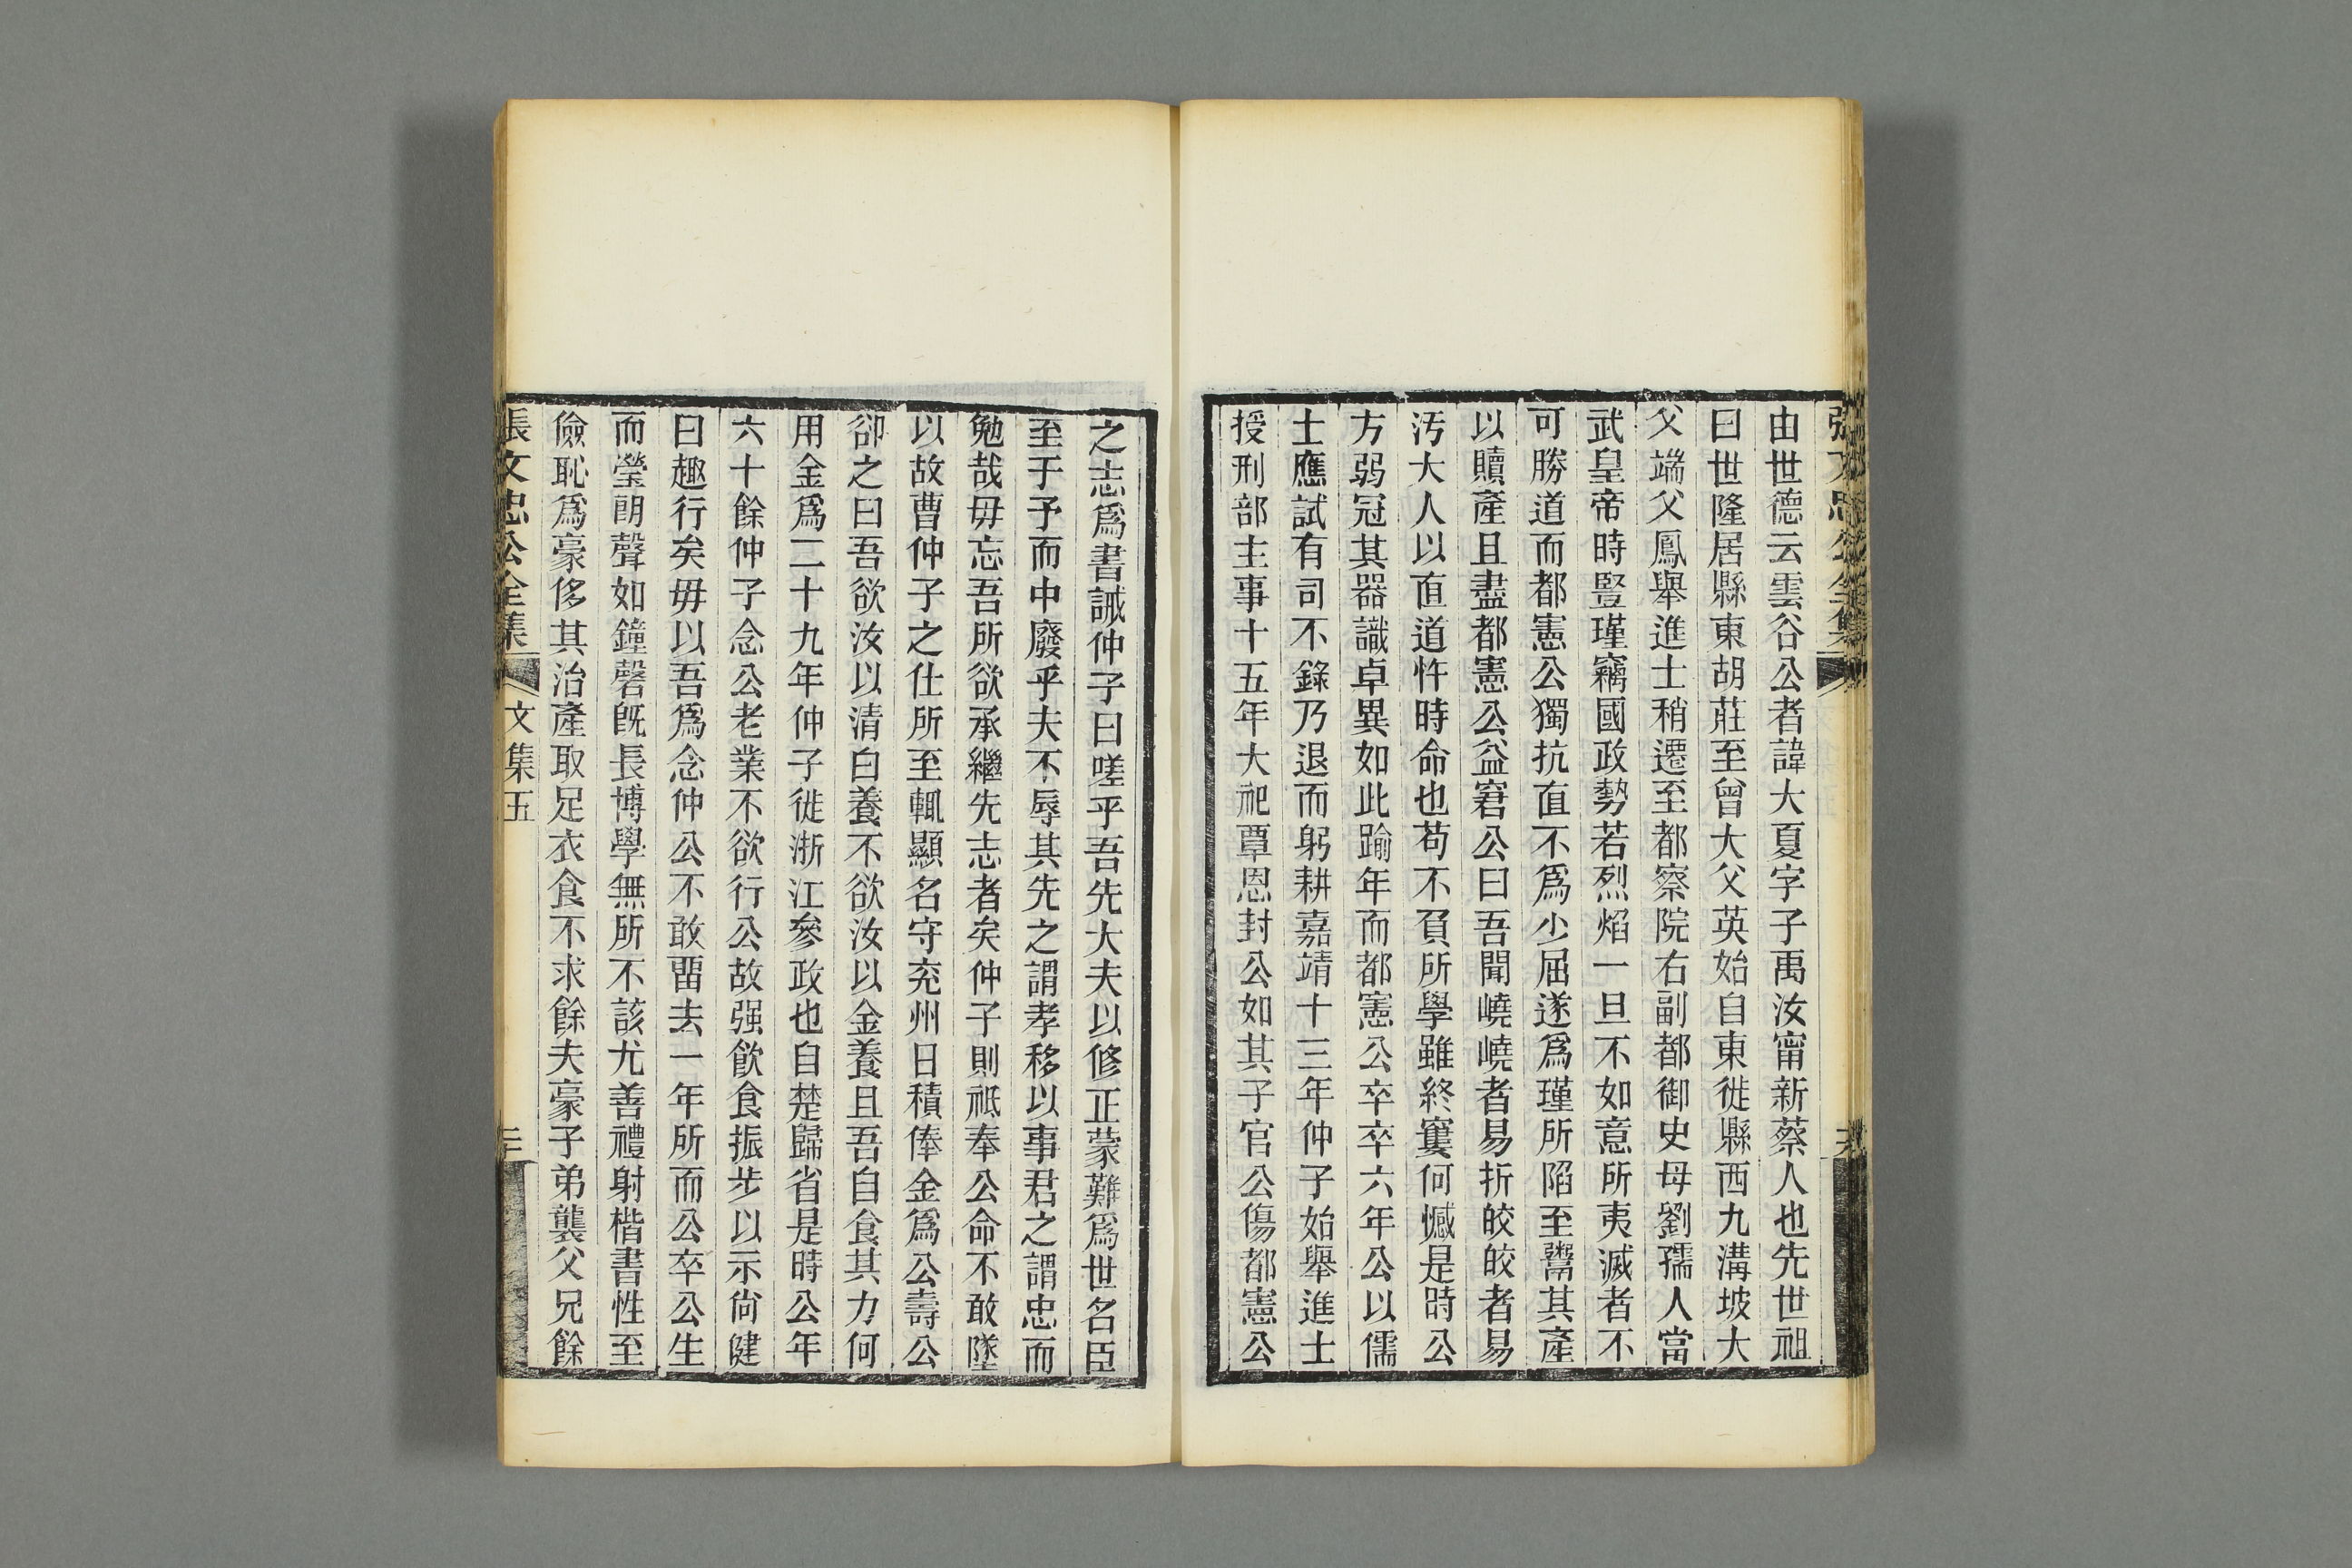 由世德云雲谷公者諱大夏字子禹汝甯新蔡人也先世祖
曰世隆居縣東胡莊至曾大父英始自東徙縣西九溝坡大
父端父鳳舉進士稍遷至都察院右副都御史母劉孺人當
武皇帝時豎瑾竊國政勢若烈焰一旦不如意所夷滅者不
可勝道而都憲公獨抗直不爲少屈遂爲瑾所陷至鬻其產
以贖產且盡都憲公益窘公曰吾聞嶢嶢者易折皎皎者易
汚大人以直道忤時命也苟不負所學雖終窶何憾是時公
方弱冠其器識卓異如此踰年而都憲公卒卒六年公以儒
士應試有司不錄乃退而躬耕嘉靖十三年仲子始舉進士
授刑部主事十五年大祀覃恩封公如其子官公傷都憲公
之志爲書誡仲子曰嗟乎吾先大夫以修正蒙難爲世名臣
至于予而中廢乎夫不辱其先之謂孝移以事君之謂忠而
勉哉毋忘吾所欲承繼先志者矣仲子則祗奉公命不敢墜
以故曹仲子之仕所至輒顯名守兖州日積俸金爲公壽公
卻之曰吾欲汝以清白養不欲汝以金養且吾自食其力何
用金爲二十九年仲子徙浙江參政也自楚歸省是時公年
六十餘仲子念公老業不欲行公故强飲食振步以示尙健
曰趣行矣毋以吾爲念仲公不敢畱去一年所而公卒公生
而瑩朗聲如鐘磬旣長博學無所不該尤善禮射楷書性至
儉恥爲豪侈其治產取足衣食不求餘夫豪子弟襲父兄餘
張文忠公全集 文集五